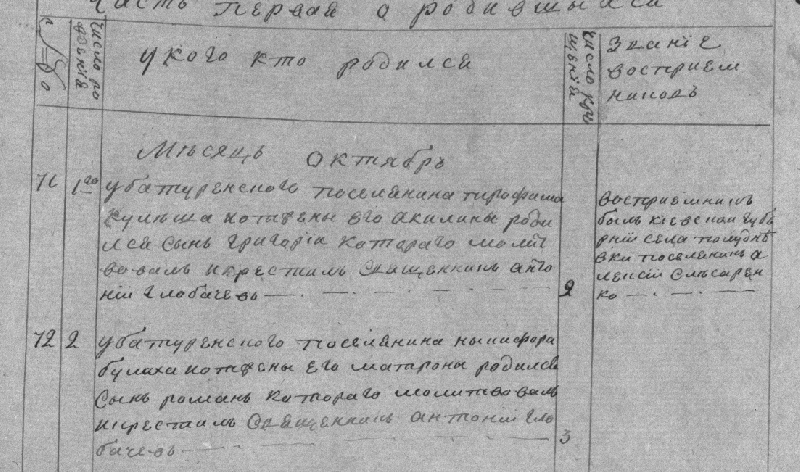 Часть Первая о родившыхся
№
число рождения
у кого кто родился
число крещения
Звание
восприем
никовъ
Мѣсяцъ Октябръ
71
1го
убатуренского поселянина
его Акилины роди
лся сынъ Григорïа котораго молит
вовалъ икрестилъ Священникъ анто
нïй Глобачевъ
2
восприемникъ
былъ киевской губе
рнïй села
вки поселянинъ а
лексïй Слюсарен
ко
72
2
убатуренского поселянина никифора
булаха изжены его матроны родился
сынъ романъ котораго молитвовалъ
икрестилъ Священникъ антонïй Гло
бачевъ
3